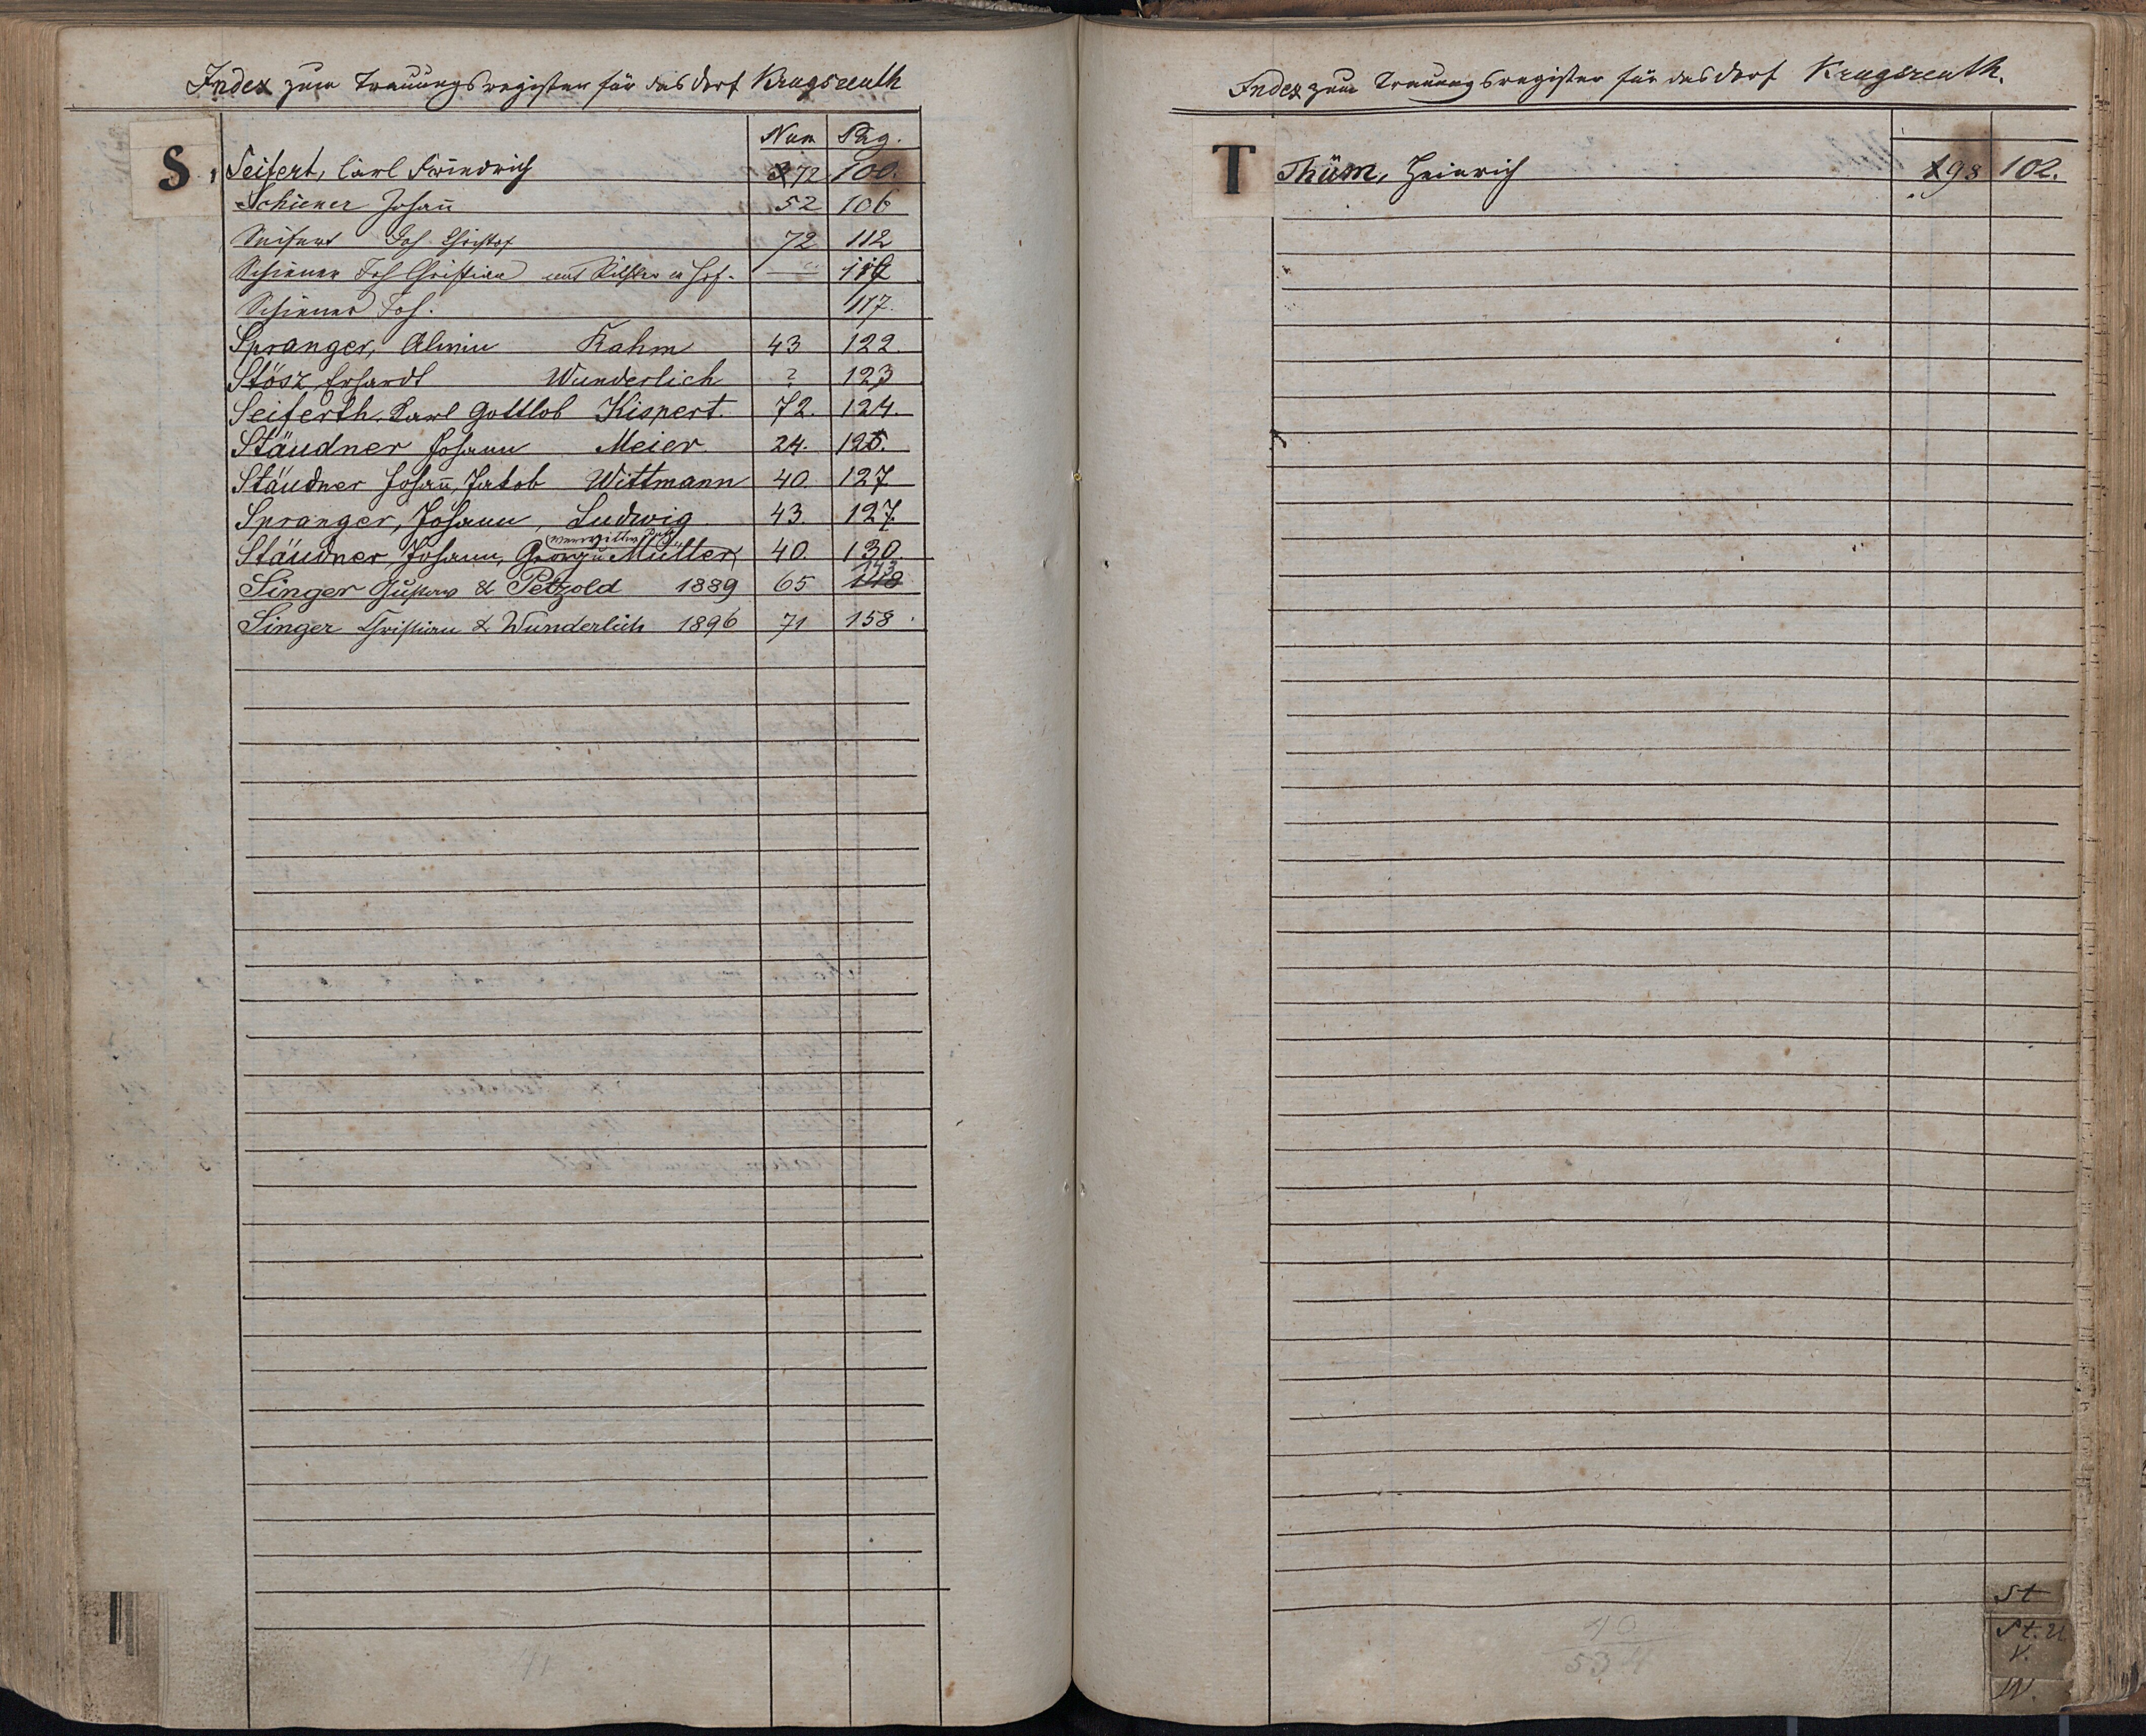 Index zum Trauungsregister für das Dorf Krugsreuth
Num Pag.
S. Seifert, Carl Friedrich 272 100.
Schiener Johañ 52 106
Seifert Joh. Christof 72 112
Schiener Joh Christian und in Hof. —
Schiener Joh. 117.
Spranger, Alwin Rahm 43 122.
Stösz Erhardt Wunderlich ? 123
Seiferth, Karl Gottlob Kispert. 72. 124.
Stäudner Johann Meier. 24. 125.
Stäudner Johañ, Jakob Wittmann 40. 127
Spranger, Johann, Ludwig 43. 127.
Stäudner, Johann, Georg u Müller 40. 130.
143
Singer Gustav & Petzold 1889 65 118
Singer Christian & Wunderlich 1896 71 158
41
Index zum Trauungsregister für das Dorf Krugsreuth.
T Thüm, Heinrich 198 102.
St
St. U
V.
W.
10
534